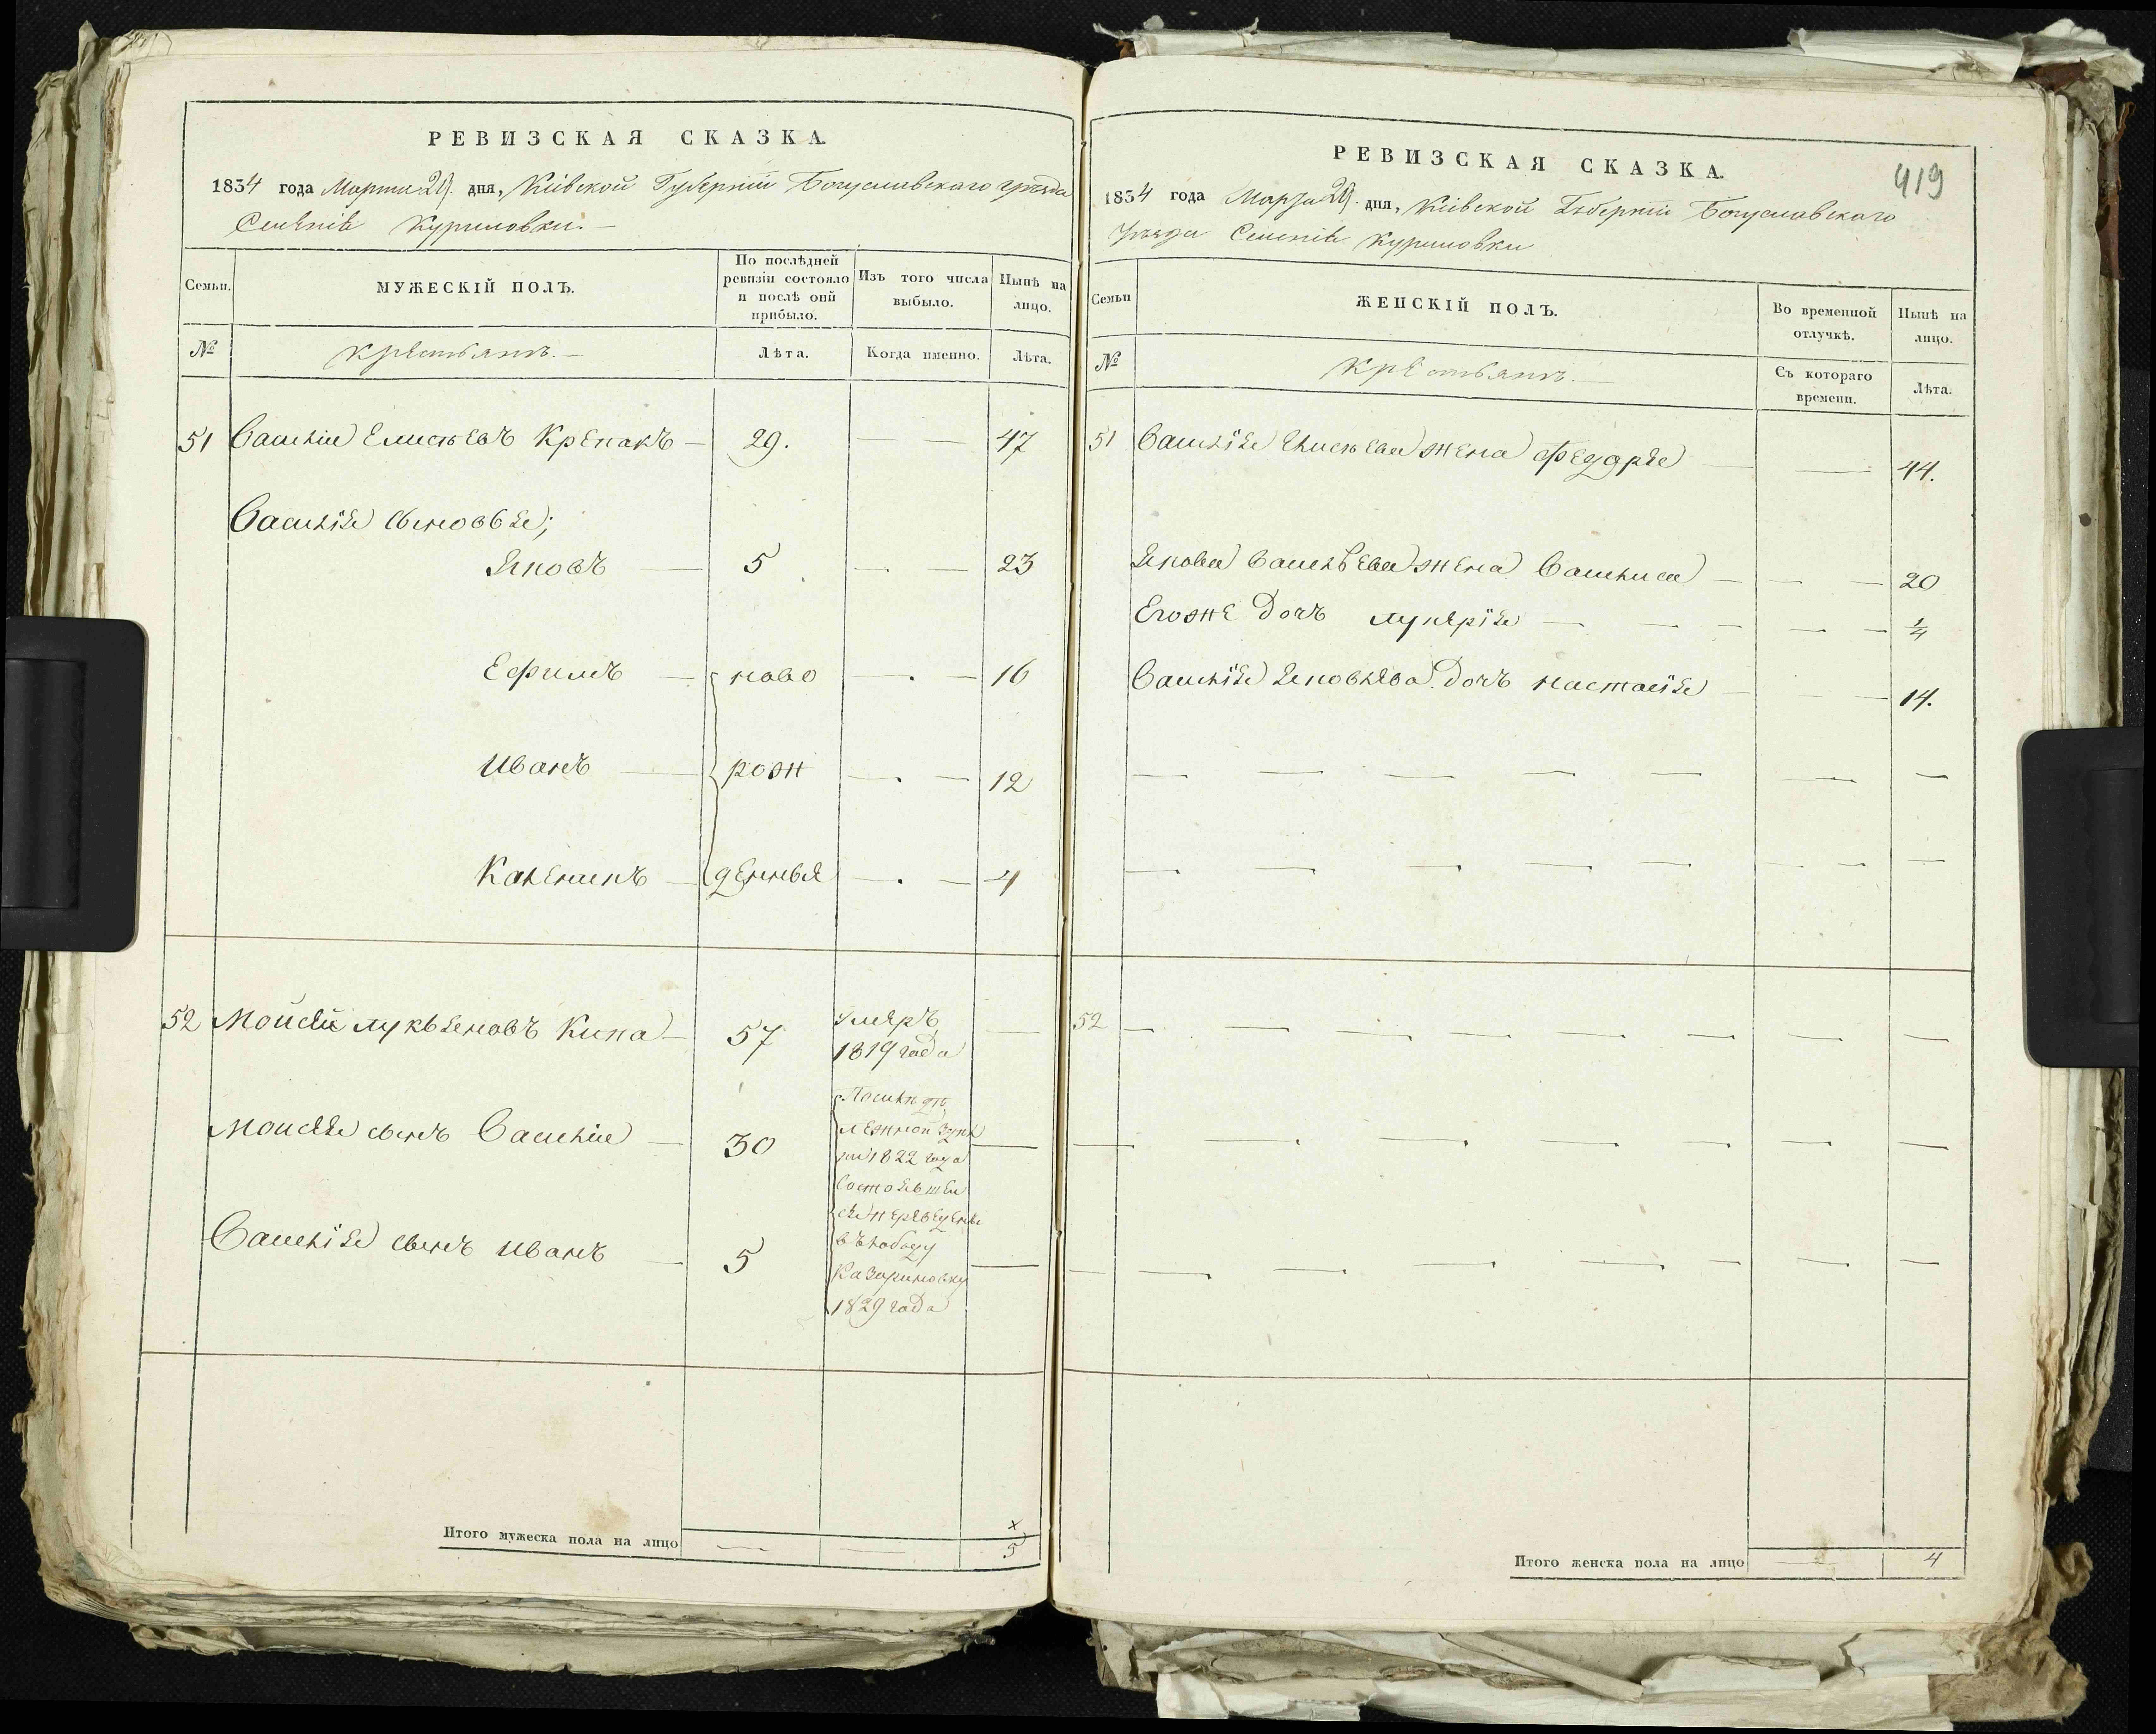 РЕВИЗСКАЯ СКАЗКА.
1834 года Марта 29. дня, Кіевской Губерніи Богуславского уѣзда
Селенія Куриловки.
Семьи.
МУЖЕСКІЙ ПОЛЪ.
По послѣдней ревизіи состояло и послѣ оній прибыло.
Изъ того числа выбыло.
Нынѣ на лицо.
№
крестьянъ.
Лѣта.
Когда именно.
Лѣта.
51 Василій Елисѣевъ Крепакъ 29. 47
Василія сыновья;
Яковъ 5 23
Ефимъ ново 16
Иванъ рож 12
Каленикъ денныя 4
52 Мойсей Лукьяновъ Кипа 57 умеръ
1819 года
Мойсея сынъ Василій 30
1822 года
Василія сынъ Иванъ 5
въ слободу
Казариновку
1829 года
Итого мужеска пола на лицо
×
5
419
РЕВИЗСКАЯ СКАЗКА.
1834 года Марта 29. дня, Кіевской Губерніи Богуславского
уѣзда Селенія Куриловки
Семьи
ЖЕНСКІЙ ПОЛЪ.
Во временной отлучкѣ.
Нынѣ на лицо.
№
крестьянъ.
Съ котораго времени.
Лѣта.
51 Василія Елисѣева жена Федоря 44.
Якова Васильева жена Василиса 20
Егоже дочъ Лукерія 1/4
Василія дочъ Настасія 14.
52
Итого женска пола на лицо 4